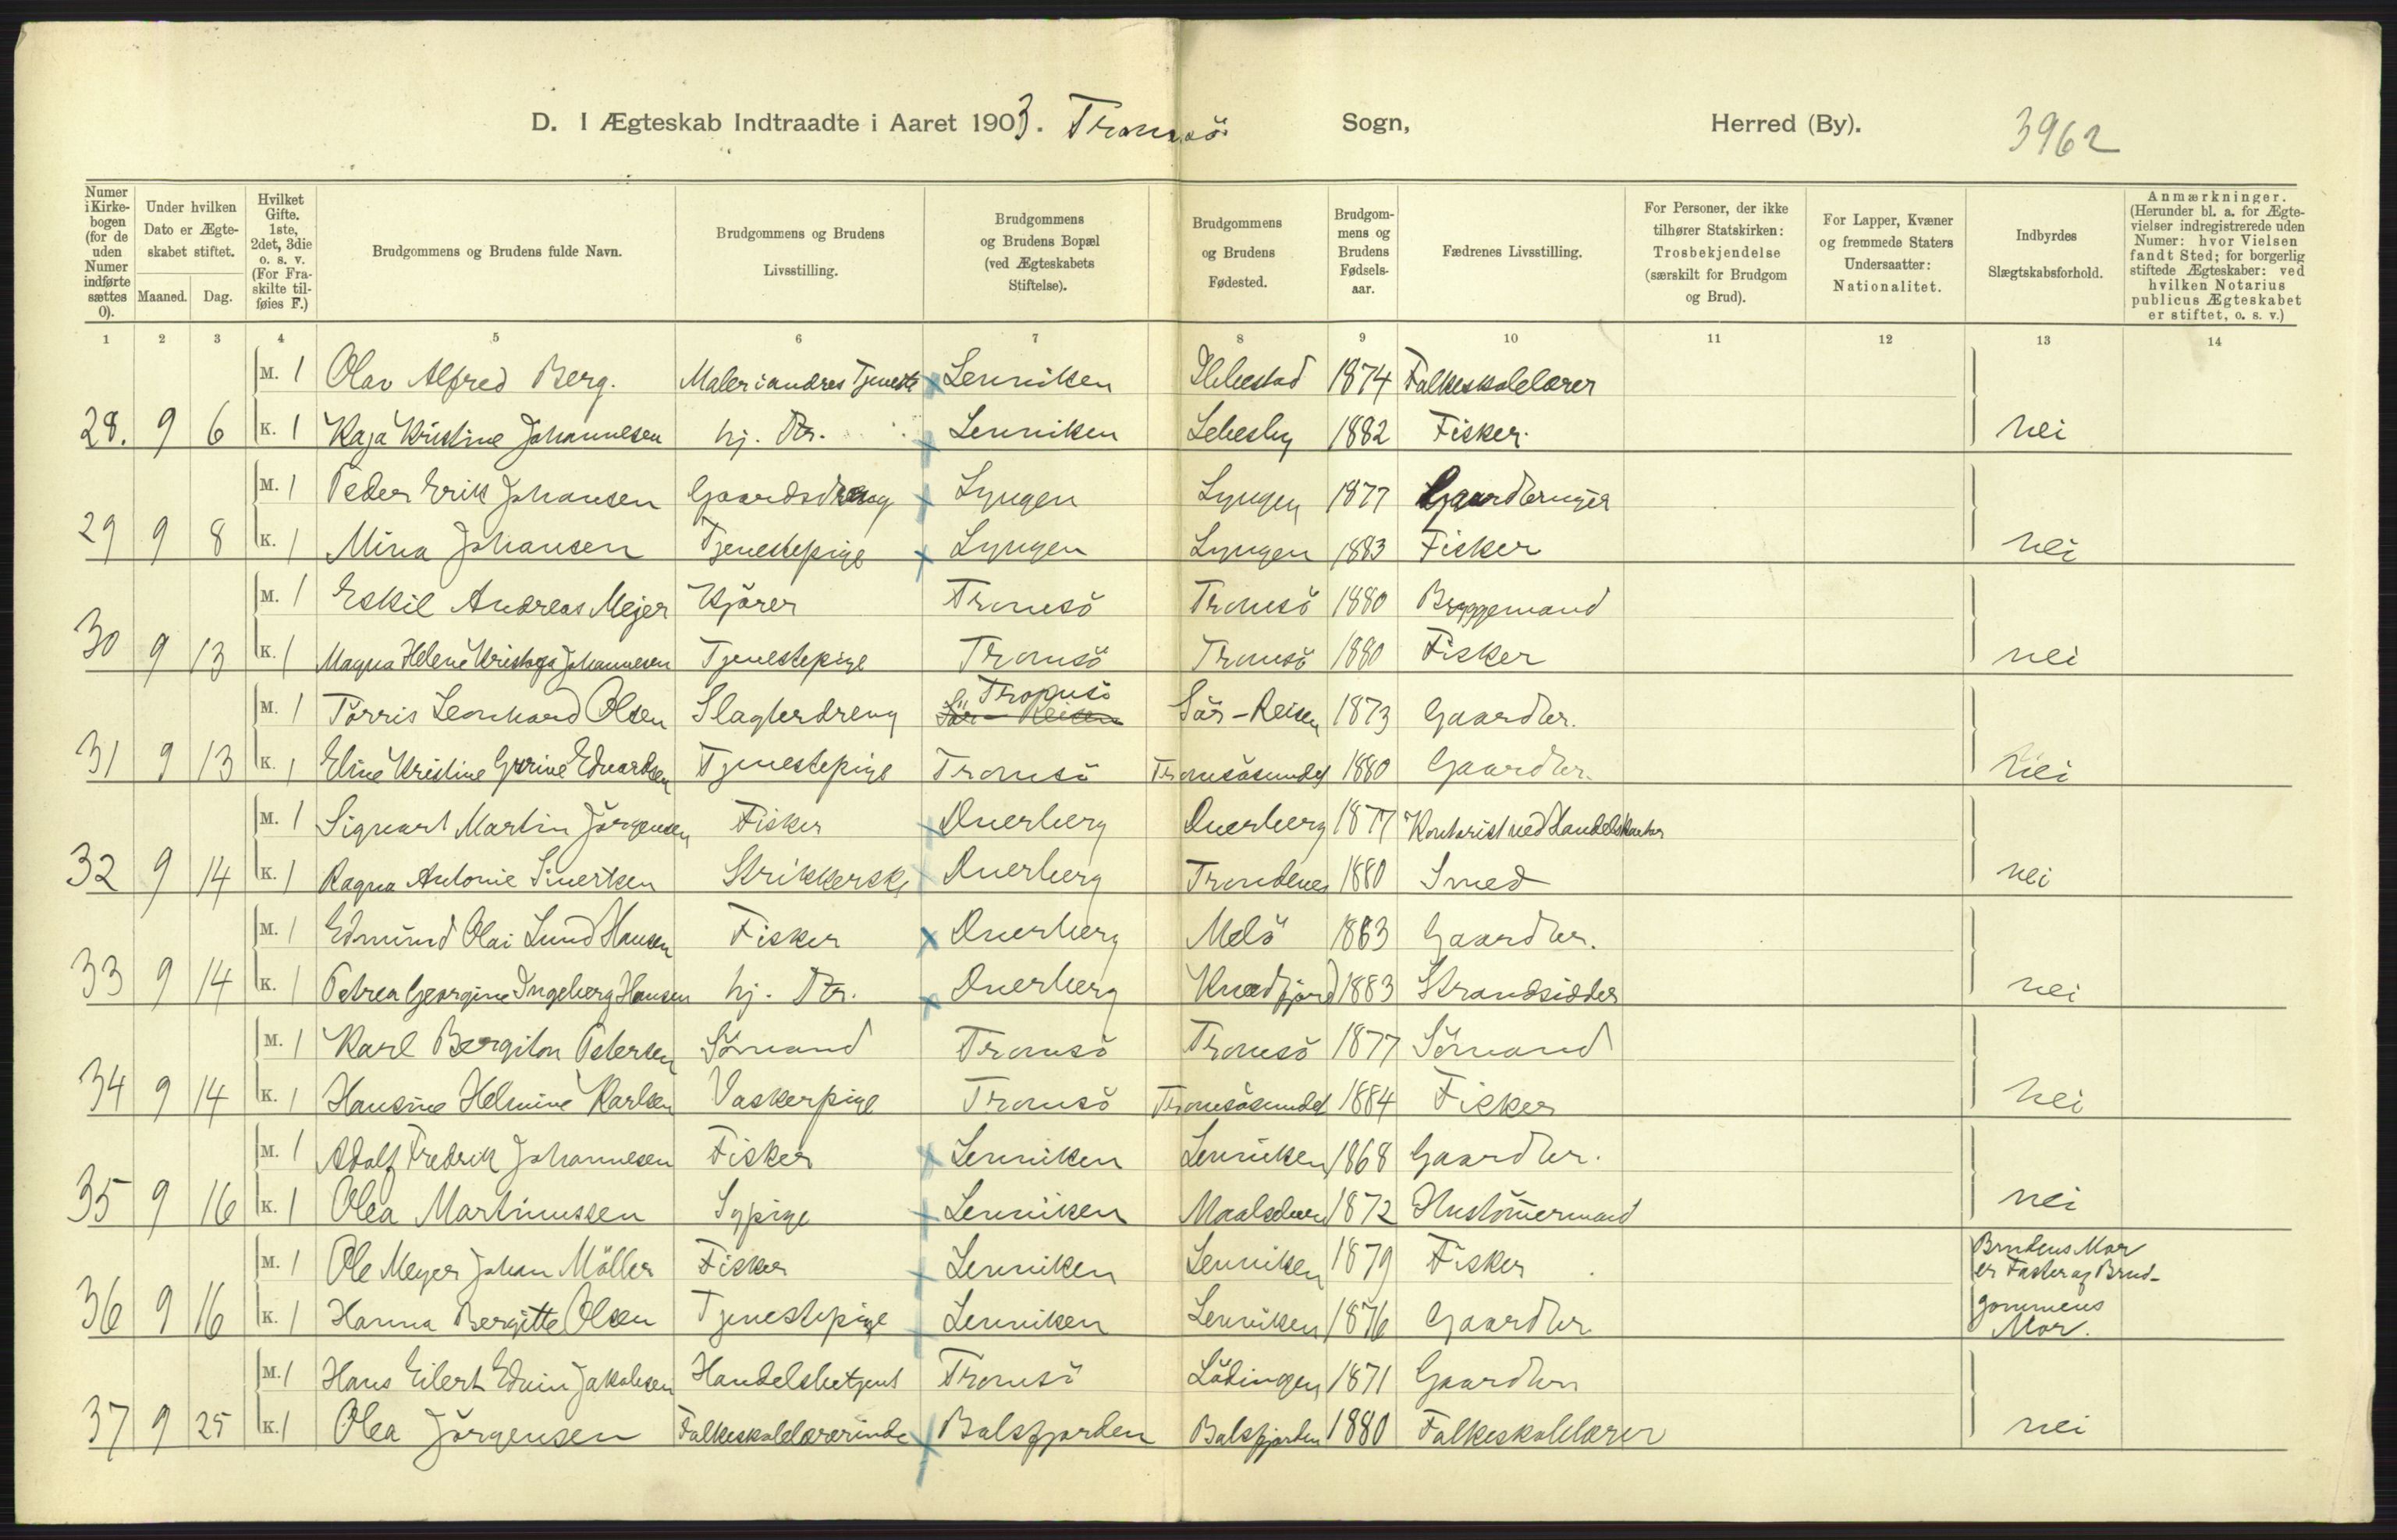 D. I Ægteskab Indtraadte i Aaret 1903. Tromsö Sogn, Herred (By). 3962
Numer i Kirkebogen (for de uden Numer indførte sættes 0). Under hvilken Dato er Ægteskabet stiftet. Maaned. Dag. Hvilket Gifte. 1ste, 2det, 3die o. s. v. (For Fraskilte tilføies F.) Brudgommens og Brudens fulde Navn. Brudgommens og Brudens Livsstilling. Brudgommens og Brudens Bopæl (ved Ægteskabets Stiftelse). Brudgommens og Brudens Fødested. Brudgommens og Brudens Fødselsaar. Fædrenes Livsstilling. For Personer, der ikke tilhører Statskirken: Trosbekjendelse (særskilt for Brudgom og Brud). For Lapper, Kvæner og fremmede Staters Undersaatter: Nationalitet. Indbyrdes Slægtskabsforhold. Anmærkninger. (Herunder bl. a. for Ægtevielser indregistrerede uden Numer: hvor Vielsen fandt Sted; for borgerlig stiftede Ægteskaber: ved hvilken Notarius publicus Ægteskabet er stiftet, o. s. v.)
1 2 3 4 5 6 7 8 9 10 11 12 13 14
M. 1 Olav Alfred Berg. Maler i andres Tjeneste Lenviken Ibbestad 1874 Folkeskolelærer
28. 9 6 K. 1 Kaja Kristine Johannesen hj. Dtr. Lenviken Lebesby 1882 Fisker. nei
M. 1 Peder Erik Johansen Gaardsdreng Lyngen Lyngen 1877 Gaardbruger
29 9 8 K. 1 Mina Johansen Tjenestepige Lyngen Lyngen 1883 Fisker nei
M. 1 Eskil Andreas Mejer Kjörer Tromsö Tromsö 1880 Bryggemand
30 9 13 K. 1 Magna Helene Johannesen Tjenestepige Tromsö Tromsö 1880 Fisker nei
M. 1 Törris Leonhard Olsen Slagterdreng Tromsö Sör-Reisen Sör-Reisen 1873 Gaardbr.
31 9 13 K. 1 Eline Kristine Gurine Edvardsen Tjenestepige Tromsö Tromsösundet 1880 Gaardbr. nei
M. 1 Sigvart Martin Jörgensen Fisker Dverberg Dverberg 1877 Kontorist ved Handelskontor
32 9 14 K. 1 Ragna Antonie Sivertsen Strikkerske Dverberg Trondenes 1880 Smed nei
M. 1 Edmund Olai Lund Hansen Fisker Dverberg Melö 1883 Gaardbr.
33 9 14 K. 1 Petrea Georgine Ingeberg Hansen hj. Dtr. Dverberg Kvædfjord 1883 Strandsidder nei
M. 1 Karl Bergiton Petersen Sömand Tromsö Tromsö 1877 Sömand
34 9 14 K. 1 Hansine Helmine Karlsen Vaskerpige Tromsö Tromsösundet 1884 Fisker nei
M. 1 Adolf Fredrik Johannesen Fisker Lenviken Lenviken 1868 Gaardbr.
35 9 16 K. 1 Olea Martinussen Sypige Lenviken Maalselven 1872 Hustömermand nei
M. 1 Ole Meyer Johan Möller Fisker Lenviken Lenviken 1879 Fisker Brudens Mor er Faster af Brud-
36 9 16 K. 1 Hanna Bergitte Olsen Tjenestepige Lenviken Lenviken 1876 Gaardbr gommens Mor.
M. 1 Hans Eilert Edvin Jakobsen Handelsbetjent Tromsö Lödingen 1871 Gaardbr
37 9 25 K. 1 Olea Jörgensen Folkeskolelærerinde Balsfjorden Balsfjorden 1880 Folkeskolelærer nei